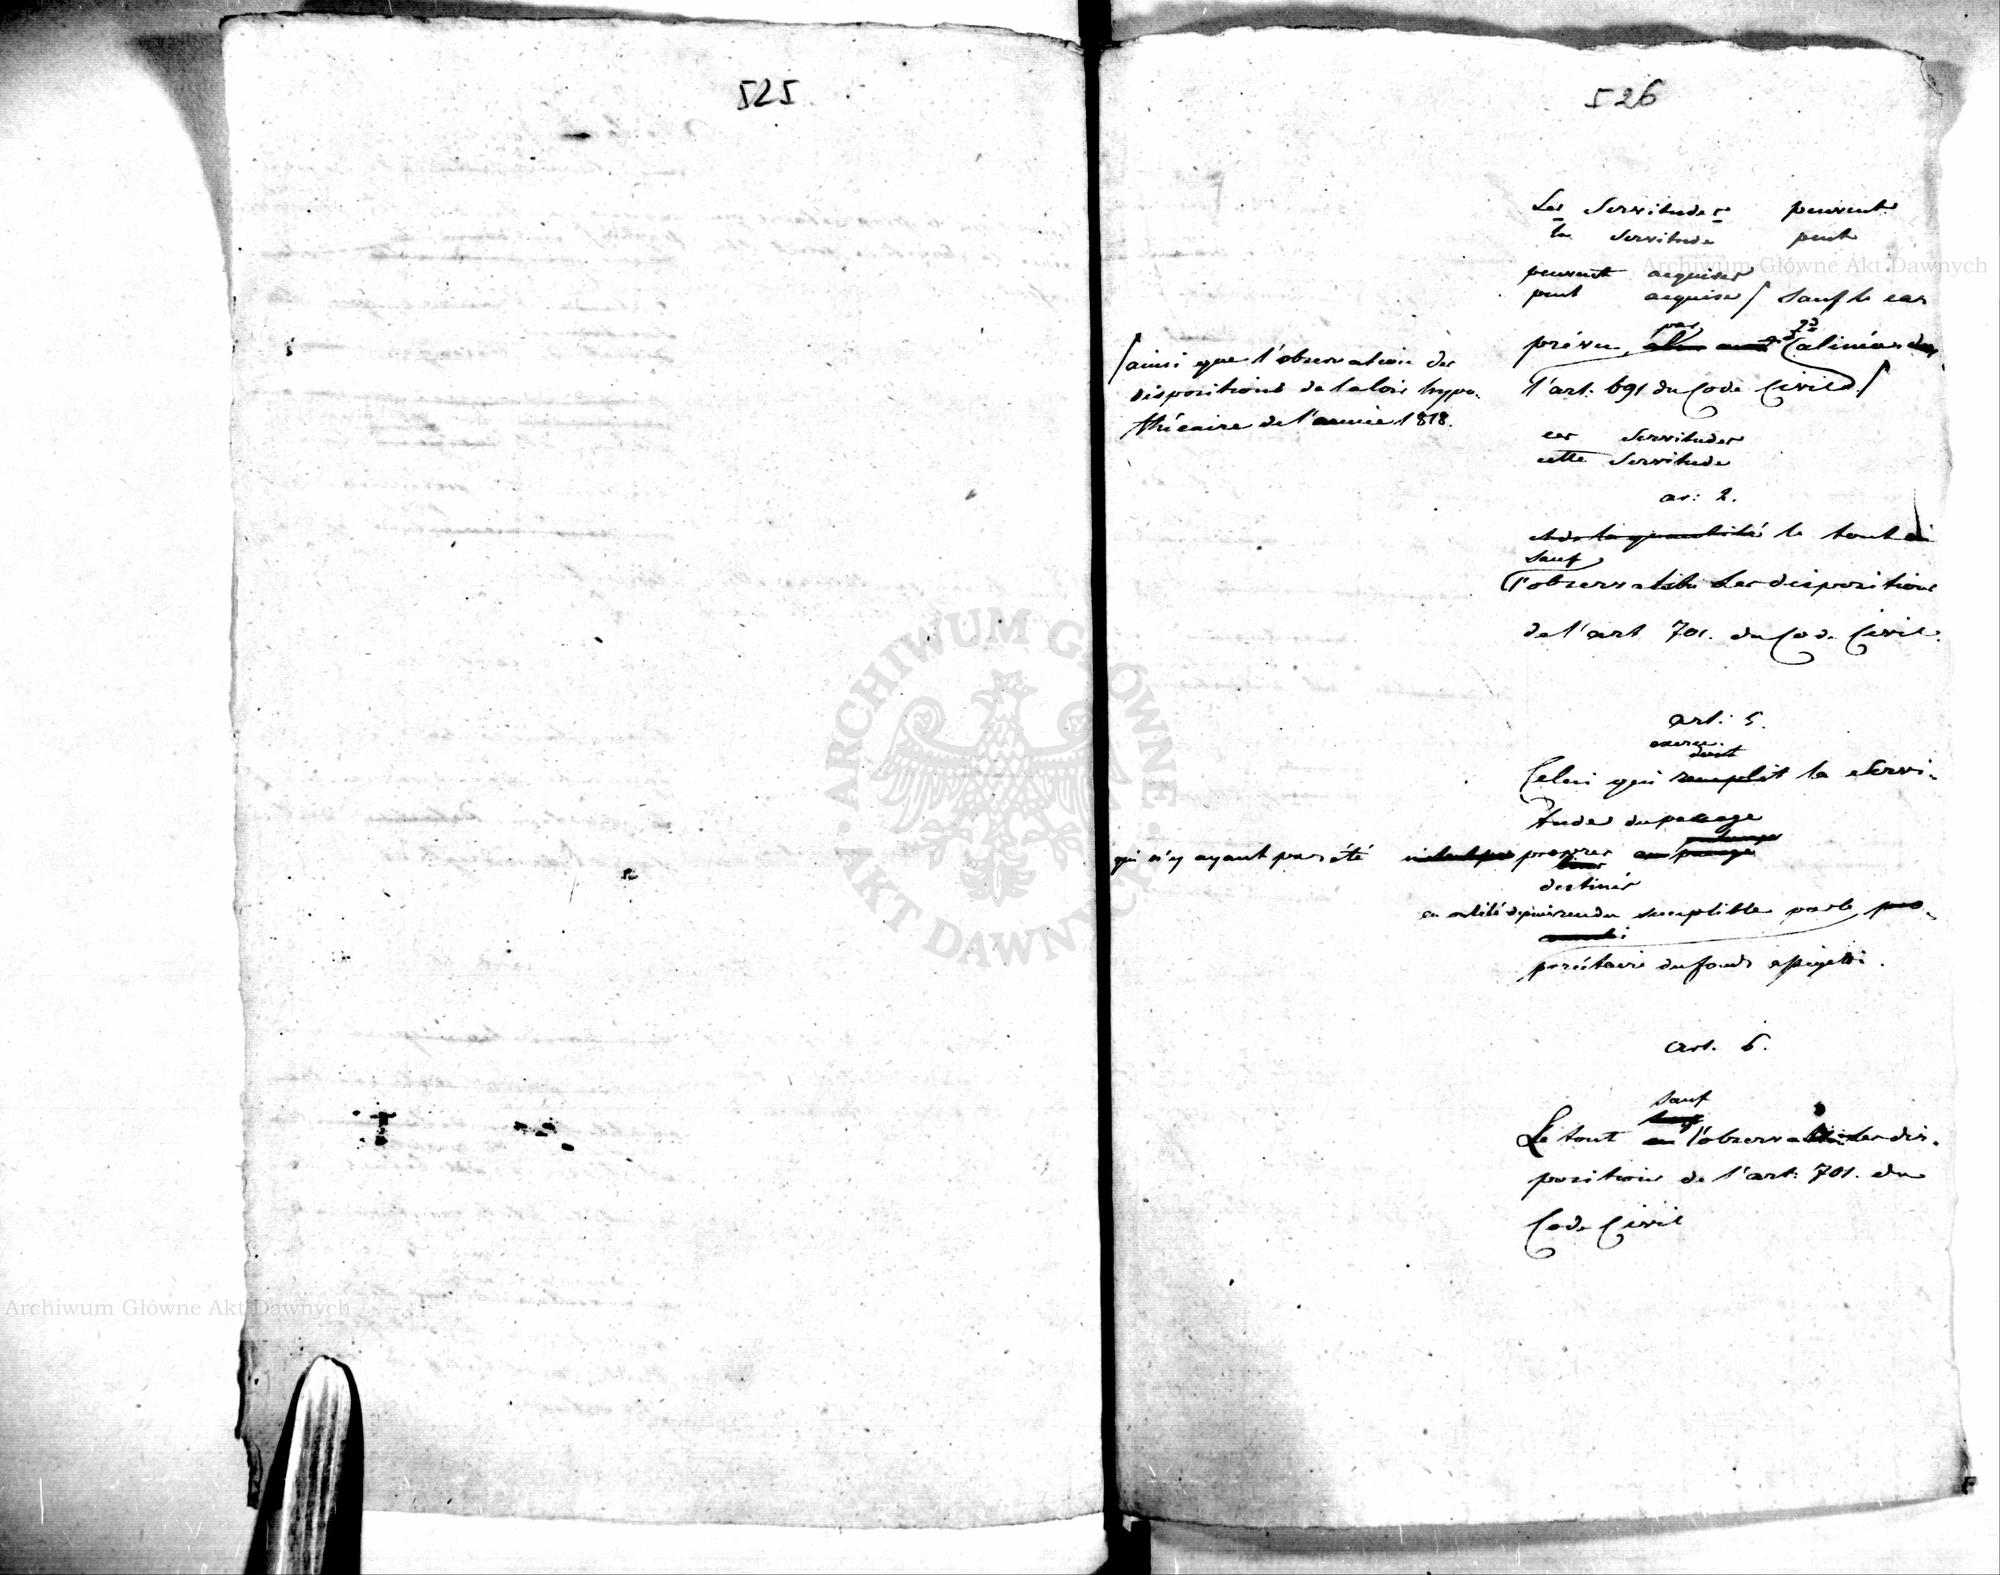 525
526
Les Servitudes peuvent
la Servitude peut
peuvent acquises
peut acquise / sauf le cas
par 2d
prévu, alinéa de
l'art. 691 du Code Civil /
/ ainsi que l'observation des
dispositions de la loi hypo-
thécaire de l'année 1818.
ces Servitudes
cette Servitude
ar: 2.
et de la quantité le tout
sauf
l'observation des dispositions
de l'art 701. du Code Civil.
art. 5.
exerce
droit
Celui qui remplit la Servi-
tudes du passage
qui n'y ayant pas été propres
destinés
a été depuis rendu par le pro-
priétaire du fonds assujetti.
art. 6.
sauf
Le tout l'observation des dis-
positions de l'art. 701. du
Code Civil
ARCHIWUM GŁÓWNE AKT DAWNYCH
Archiwum Główne Akt Dawnych
Archiwum Główne Akt Dawnych